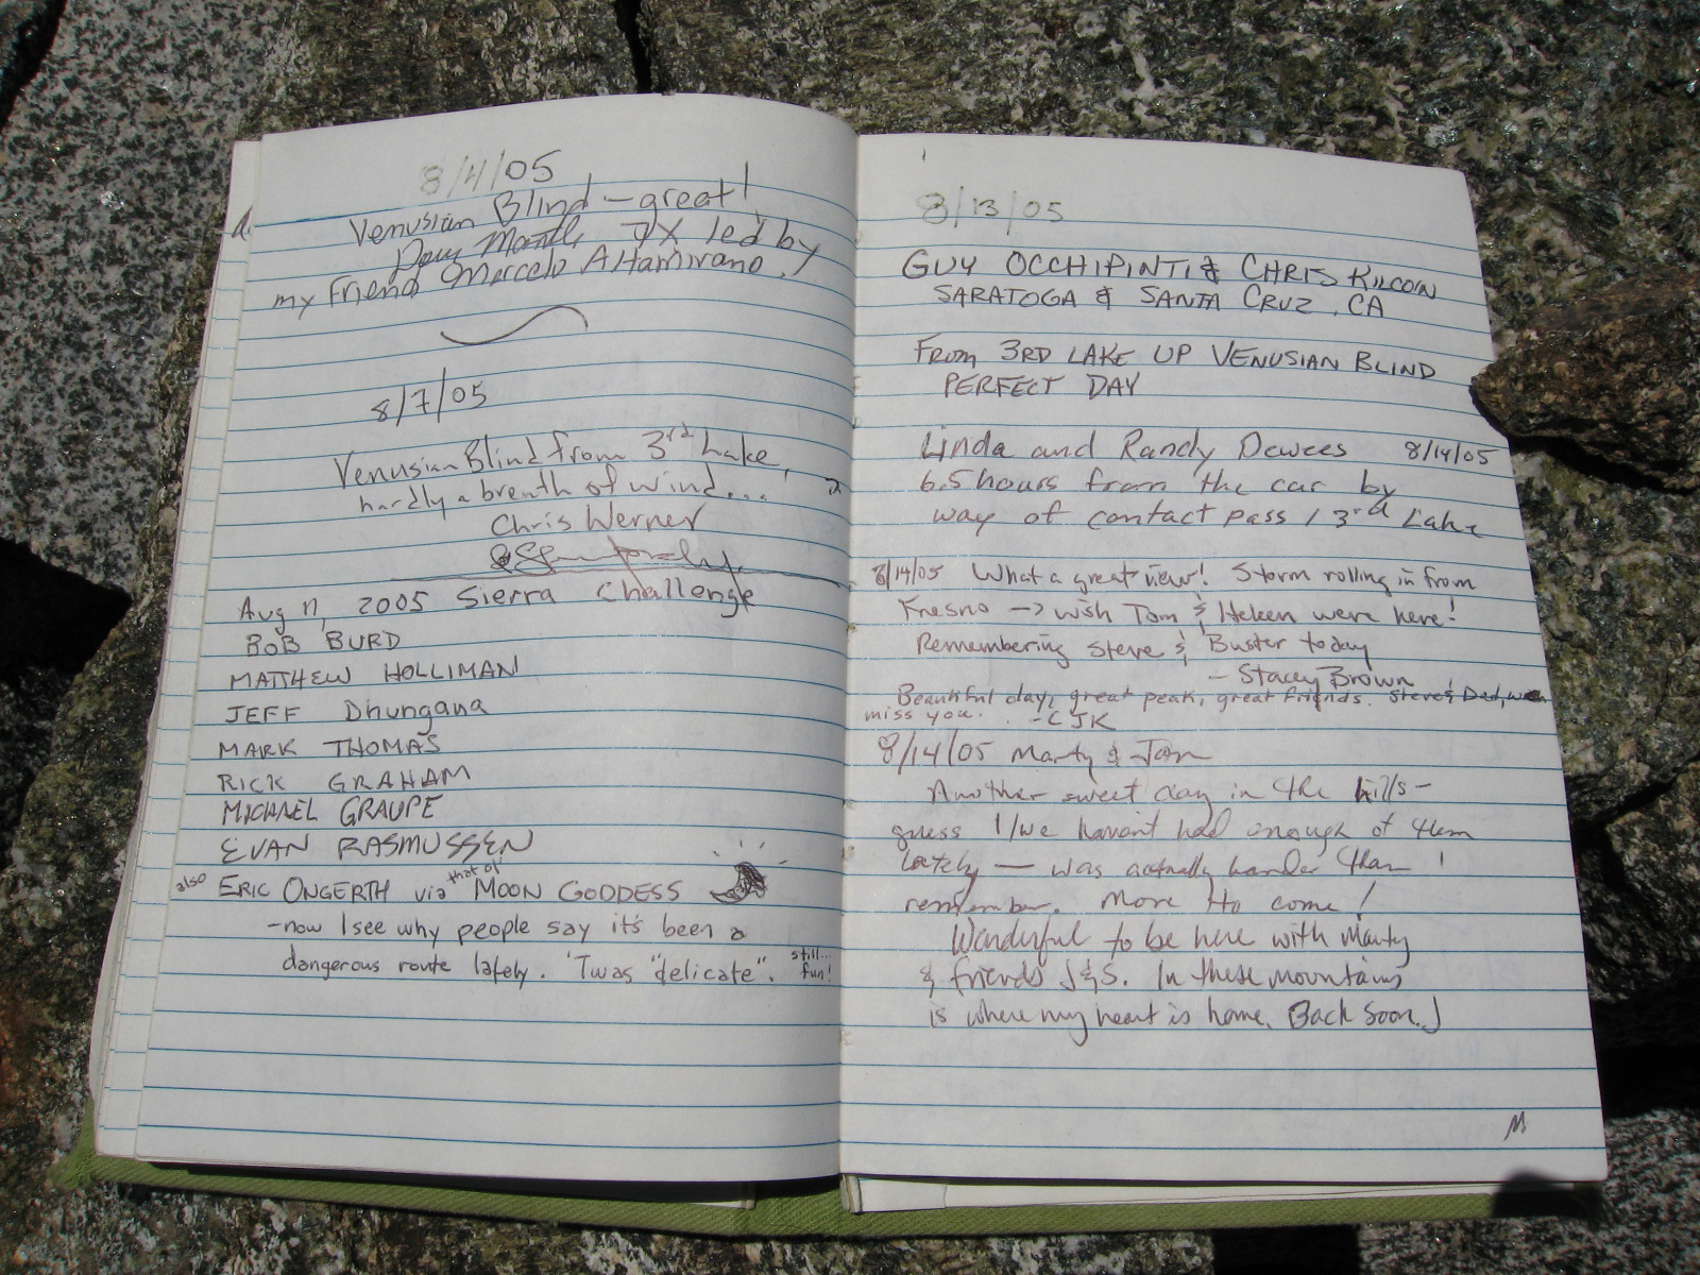 8/4/05
Venusian Blind – great!
Doug Mantle 7X led by
my friend Marcelo Altamirano.
8/7/05
Venusian Blind from 3rd Lake,
hardly a breath of wind...
Chris Werner
Aug 11, 2005 Sierra Challenge
BOB BURD
MATTHEW HOLLIMAN
JEFF Dhungana
MARK THOMAS
RICK GRAHAM
MICHAEL GRAUPE
EVAN RASMUSSEN
also ERIC ONGERTH via that of MOON GODDESS
-now I see why people say it's been a
dangerous route lately. 'Twas "delicate". still... fun!
8/13/05
GUY OCCHIPINTI & CHRIS KILCOIN
SARATOGA & SANTA CRUZ, CA
FROM 3RD LAKE UP VENUSIAN BLIND
PERFECT DAY
Linda and Randy Dewees 8/14/05
6.5 hours from the car by
way of contact pass / 3rd Lake
8/14/05 What a great view! Storm rolling in from
Fresno -> wish Tom & Heleen were here!
Remembering Steve & Buster today
- Stacey Brown
Beautiful day, great peak, great friends. Steve's Dad, we
miss you. -CJK
8/14/05 Marty & Jan
Another sweet day in the hills -
guess I/we haven't had enough of them
lately — was actually harder than I
remember. More to come!
Wonderful to be here with Marty
& friends J&S. In these mountains
is where my heart is home. Back soon. J
M